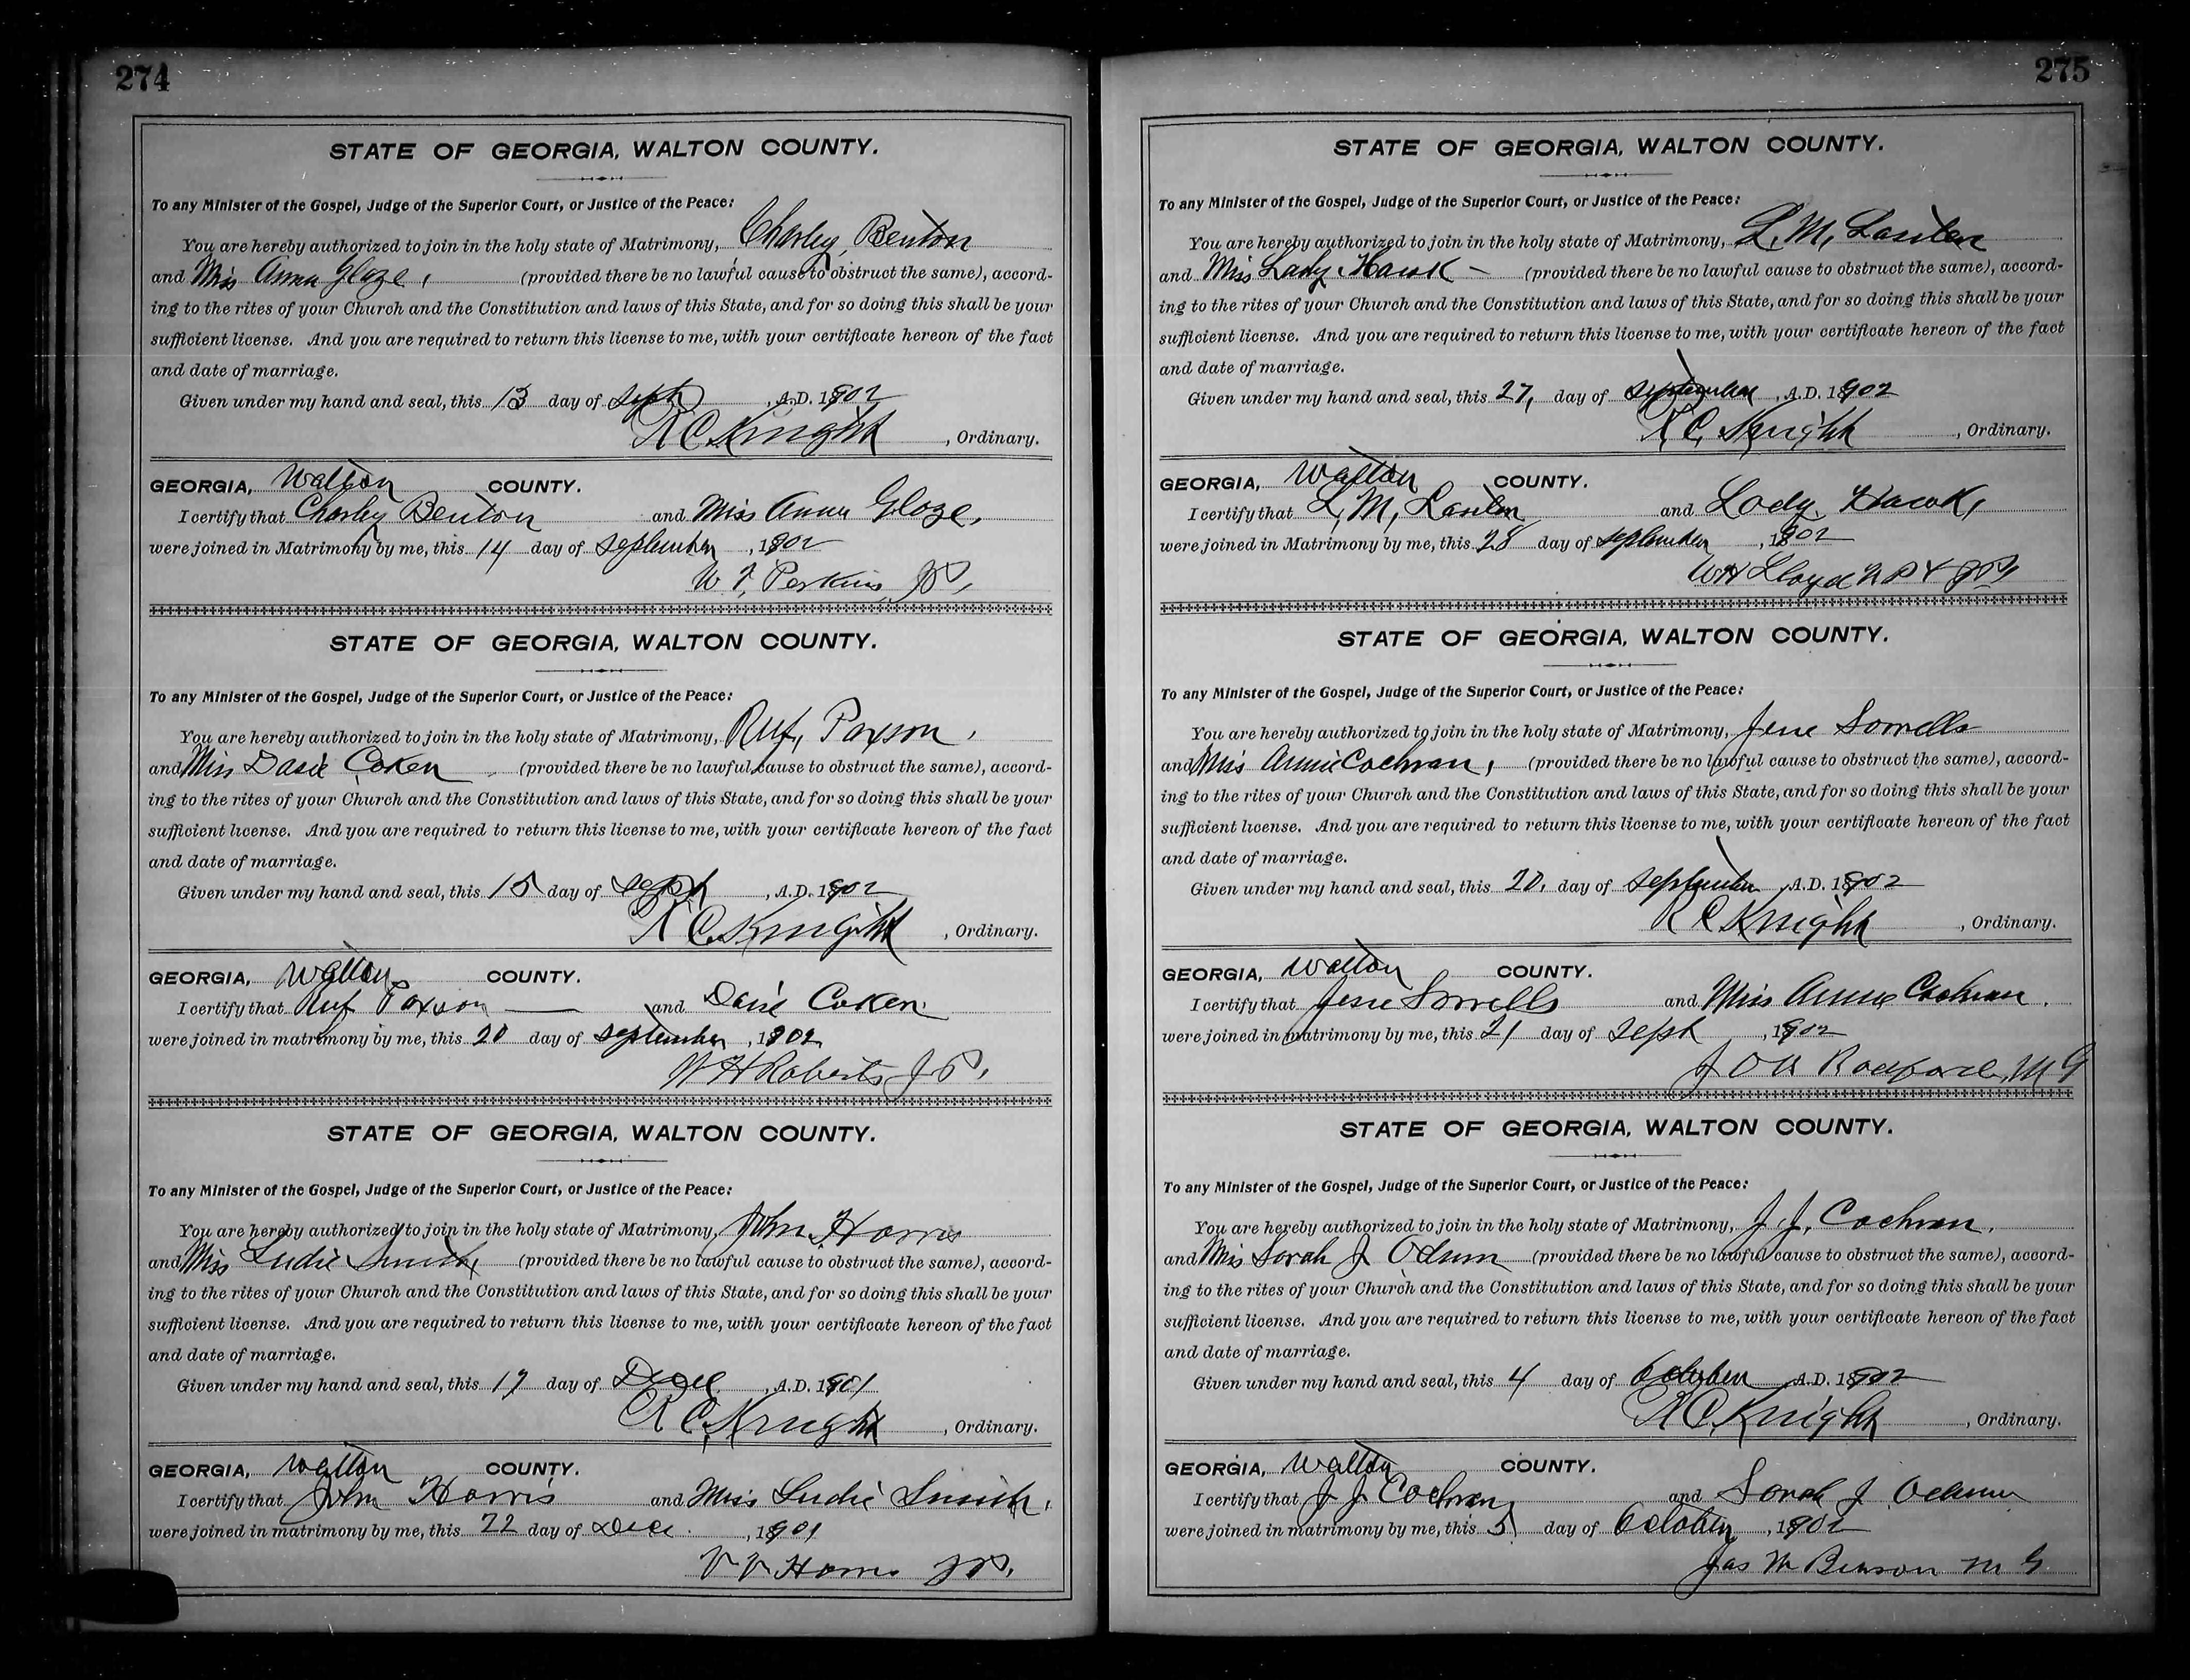 274
STATE OF GEORGIA, WALTON COUNTY.
To any Minister of the Gospel, Judge of the Superior Court, or Justice of the Peace:
You are hereby authorized to join in the holy state of Matrimony, Charley Benton
and Miss Anna Glaze, (provided there be no lawful cause to obstruct the same), accord-
ing to the rites of your Church and the Constitution and laws of this State, and for so doing this shall be your
sufficient license. And you are required to return this license to me, with your certificate hereon of the fact
and date of marriage.
Given under my hand and seal, this 13 day of Sept, A.D. 1902
R C Knight, Ordinary.
GEORGIA, Walton COUNTY.
I certify that Charley Benton and Miss Anna Glaze,
were joined in Matrimony by me, this 14 day of September, 1902
W. Perkins J P,
STATE OF GEORGIA, WALTON COUNTY.
To any Minister of the Gospel, Judge of the Superior Court, or Justice of the Peace:
You are hereby authorized to join in the holy state of Matrimony, Ruf, Paxson,
and Miss Dasie Coker (provided there be no lawful cause to obstruct the same), accord-
ing to the rites of your Church and the Constitution and laws of this State, and for so doing this shall be your
sufficient license. And you are required to return this license to me, with your certificate hereon of the fact
and date of marriage.
Given under my hand and seal, this 15 day of Sept, A.D. 1902
R C Knight, Ordinary.
GEORGIA, Walton COUNTY.
I certify that Ruf Paxson and Dasie Coker
were joined in matrimony by me, this 20 day of September, 1902
W H Roberts J. P.,
STATE OF GEORGIA, WALTON COUNTY.
To any Minister of the Gospel, Judge of the Superior Court, or Justice of the Peace:
You are hereby authorized to join in the holy state of Matrimony, John Harris
and Miss Ludie Smith, (provided there be no lawful cause to obstruct the same), accord-
ing to the rites of your Church and the Constitution and laws of this State, and for so doing this shall be your
sufficient license. And you are required to return this license to me, with your certificate hereon of the fact
and date of marriage.
Given under my hand and seal, this day of Dec, A.D. 1901
R C Knight, Ordinary.
GEORGIA, Walton COUNTY.
I certify that John Harris and Miss Ludie Smith,
were joined in matrimony by me, this 22 day of Dec., 1901
V V Harris J P.
275
STATE OF GEORGIA, WALTON COUNTY.
To any Minister of the Gospel, Judge of the Superior Court, or Justice of the Peace:
You are hereby authorized to join in the holy state of Matrimony, L. M.
and Miss Lady Hawk (provided there be no lawful cause to obstruct the same), accord-
ing to the rites of your Church and the Constitution and laws of this State, and for so doing this shall be your
sufficient license. And you are required to return this license to me, with your certificate hereon of the fact
and date of marriage.
Given under my hand and seal, this 27, day of September, A.D. 1902
R. C. Knight, Ordinary.
GEORGIA, Walton COUNTY.
I certify that L. M. and Lady Hawk,
were joined in Matrimony by me, this 28 day of September, 1902
W H Lloyd N P & J P
STATE OF GEORGIA, WALTON COUNTY.
To any Minister of the Gospel, Judge of the Superior Court, or Justice of the Peace:
You are hereby authorized to join in the holy state of Matrimony, Jesse Sorrells
and Miss Annie Cochran, (provided there be no lawful cause to obstruct the same), accord-
ing to the rites of your Church and the Constitution and laws of this State, and for so doing this shall be your
sufficient license. And you are required to return this license to me, with your certificate hereon of the fact
and date of marriage.
Given under my hand and seal, this 20, day of September A.D. 1902
R C Knight, Ordinary.
GEORGIA, Walton COUNTY.
I certify that Jesse Sorrells and Miss Annie Cochran.
were joined in matrimony by me, this 21 day of Sept, 1902
J O A Radford, M G
STATE OF GEORGIA, WALTON COUNTY.
To any Minister of the Gospel, Judge of the Superior Court, or Justice of the Peace:
You are hereby authorized to join in the holy state of Matrimony, J. J. Cochran,
and Miss Sarah J Odum (provided there be no lawful cause to obstruct the same), accord-
ing to the rites of your Church and the Constitution and laws of this State, and for so doing this shall be your
sufficient license. And you are required to return this license to me, with your certificate hereon of the fact
and date of marriage.
Given under my hand and seal, this 4 day of October A.D. 1902
R C Knight, Ordinary.
GEORGIA, Walton COUNTY.
I certify that J J Cochran and Sarah J Odum
were joined in matrimony by me, this 5 day of October, 1902
Jas M Benson M G